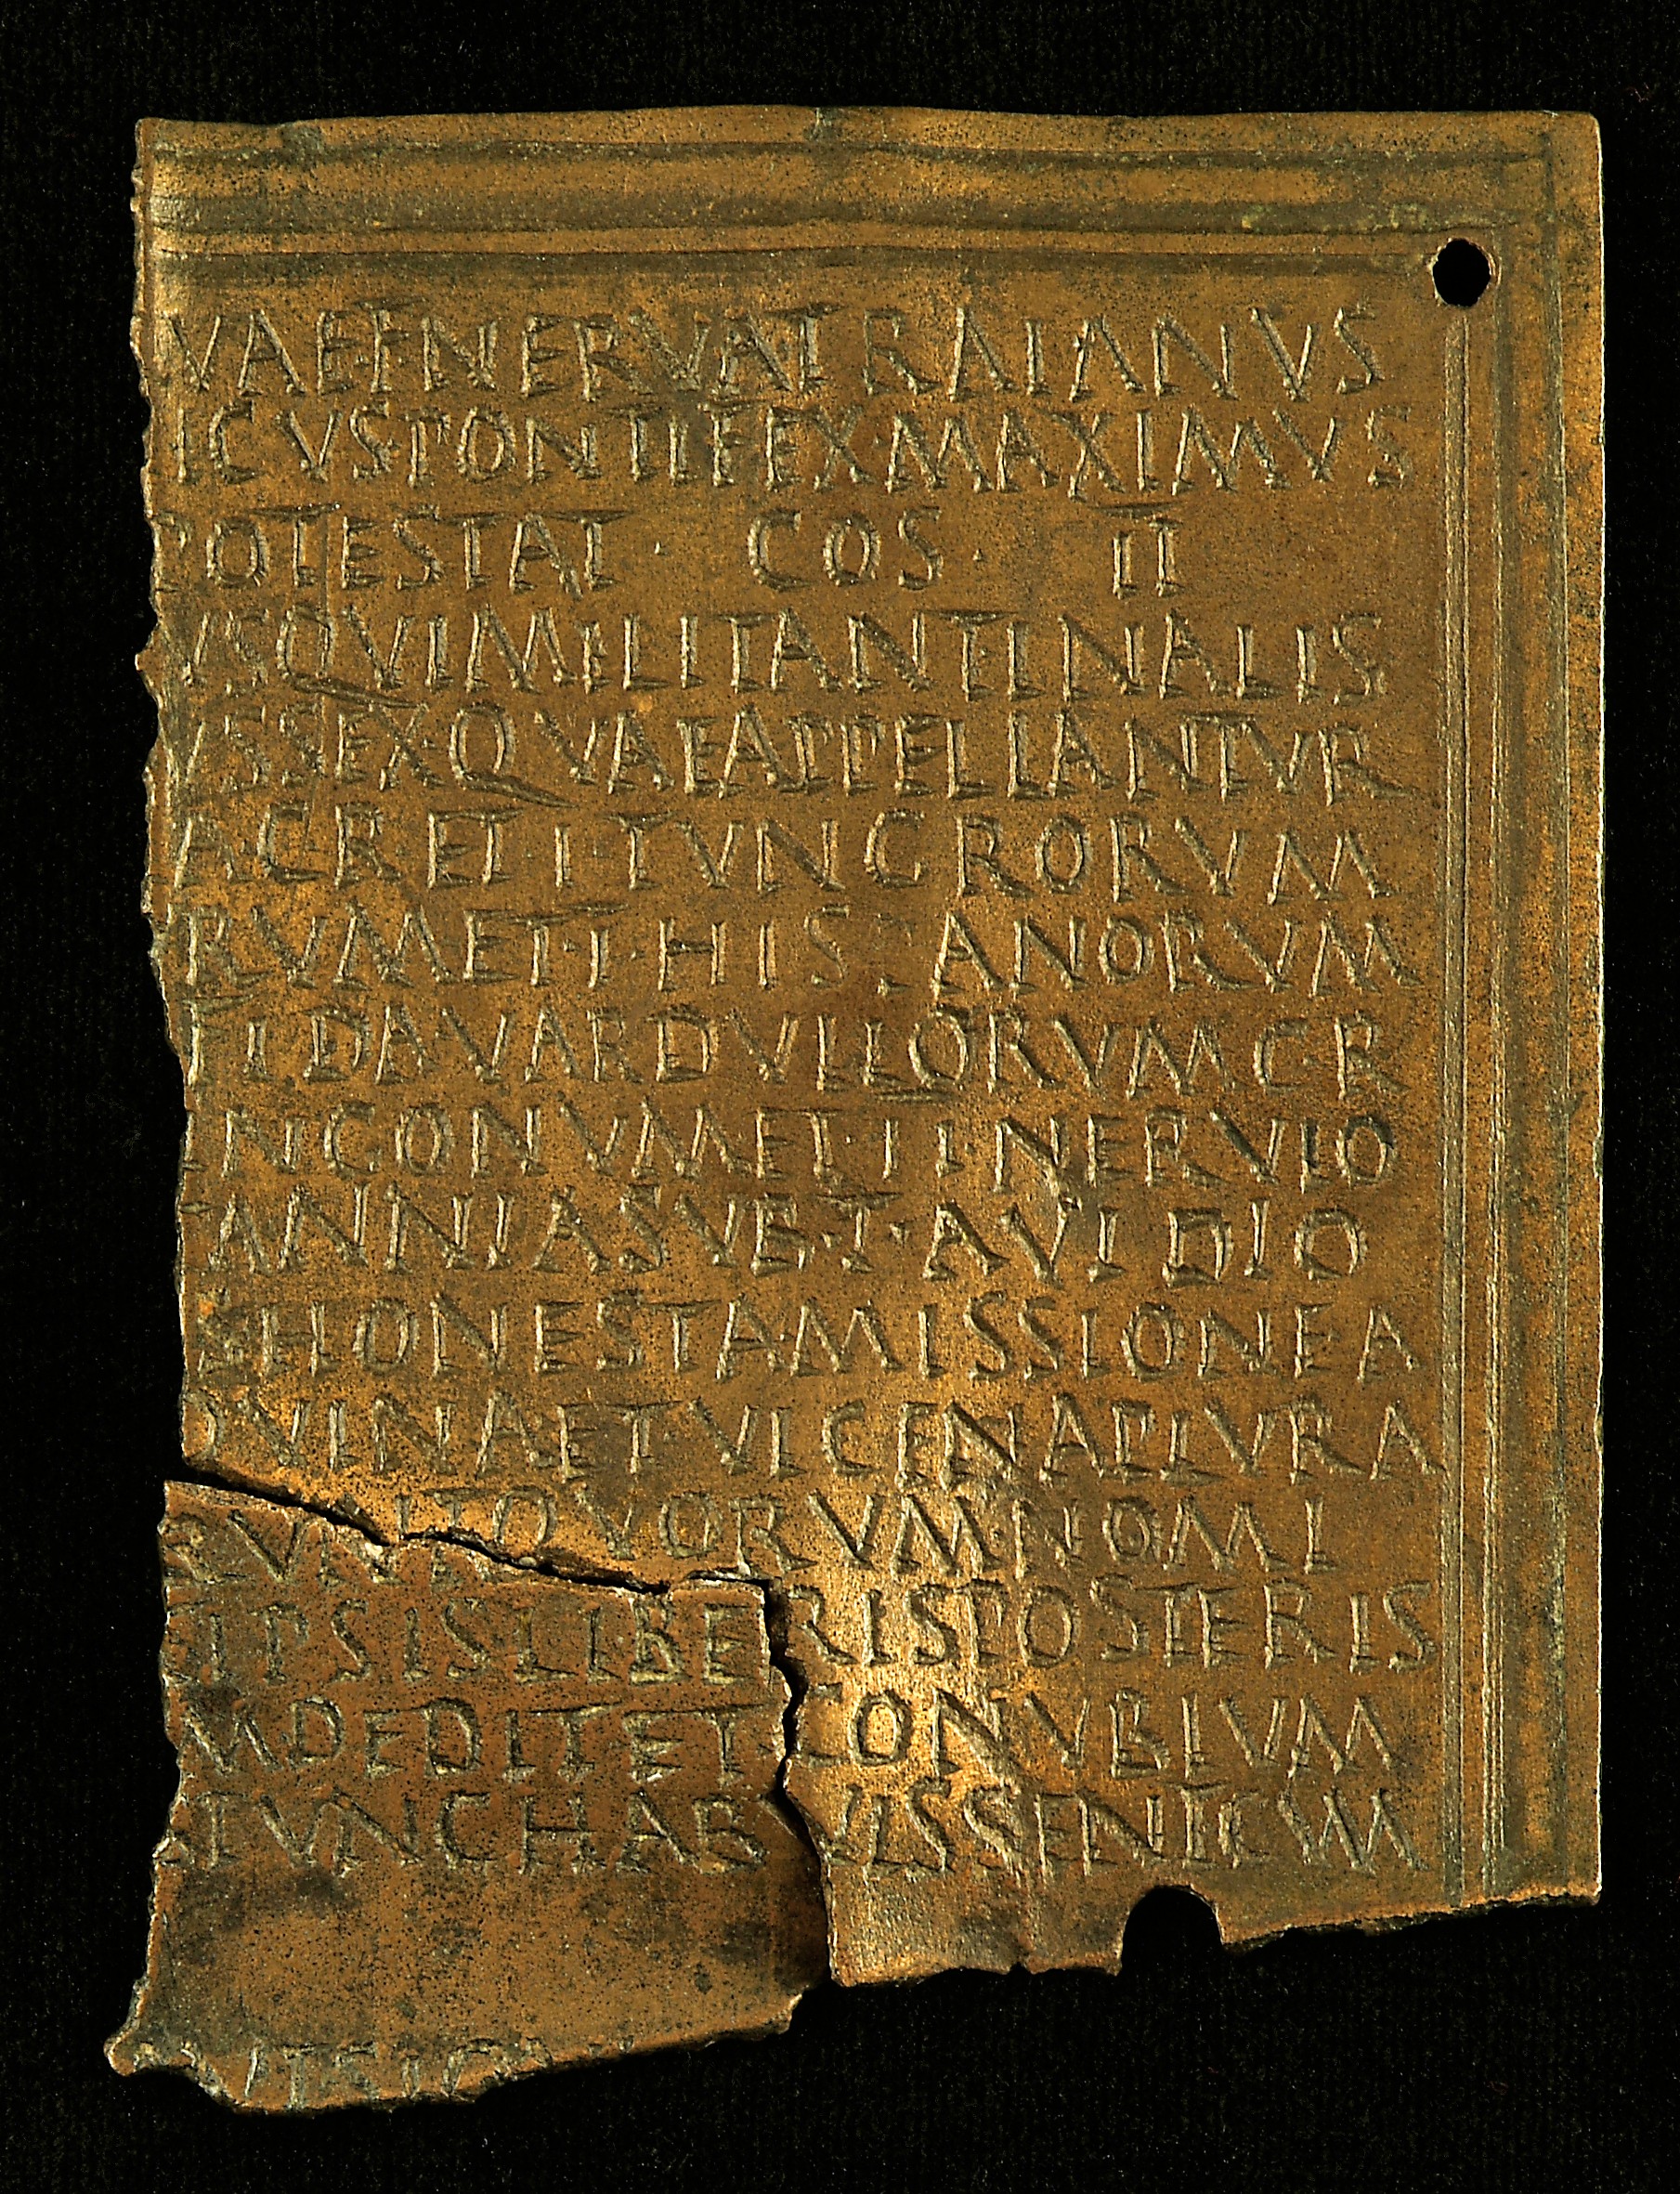 VAE·F·NERVA TRAIANVS
ICVS·PONTIFEX·MAXIMVS
POTESTAT · COS · II
VS QVI MILITANT IN ALIS
VS SEX·QVAE APPELLANTVR
A·C·R·ET I·TVNGRORVM
RVM ET I·HISPANORVM
ET I·DA·VARDVLLORVM·C·R
INGONVM ET II·NERVIO
ANNIA SVB·T·AVIDIO
S HONESTA MISSIONE A
QVINA ET VICENA PLVRA
RVNT QVORVM NOMI
IPSIS LIBERIS POSTERIS
M DEDIT ET CONVBIVM
S TVNC HABVISSENT CVM